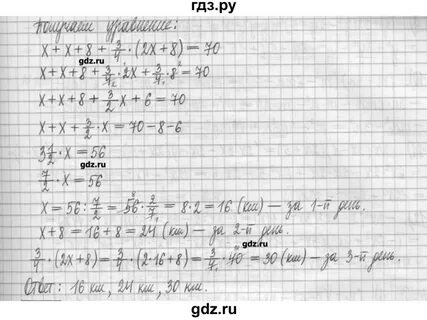 гдз.ру
Получаем уравнение:
x + x + 8 + 3/4 · (2x + 8) = 70
гдз.ру
x + x + 8 + 3/4 · 2x + 3/4 · 8 = 70
x + x + 8 + 3/2 x + 6 = 70
x + x + 3/2 · x = 70 - 8 - 6
3 1/2 · x = 56
гдз.ру
7/2 · x = 56
гдз.ру
x = 56 : 7/2 = 56 · 2/7 = 8 · 2 = 16 (км) — за 1-й день.
x + 8 = 16 + 8 = 24 (км) — за 2-й день.
3/4 · (2x + 8) = 3/4 · (2 · 16 + 8) = 3/4 · 40 = 30 (км) — за 3-й день.
Ответ: 16 км, 24 км, 30 км.
гдз.ру
гдз.ру